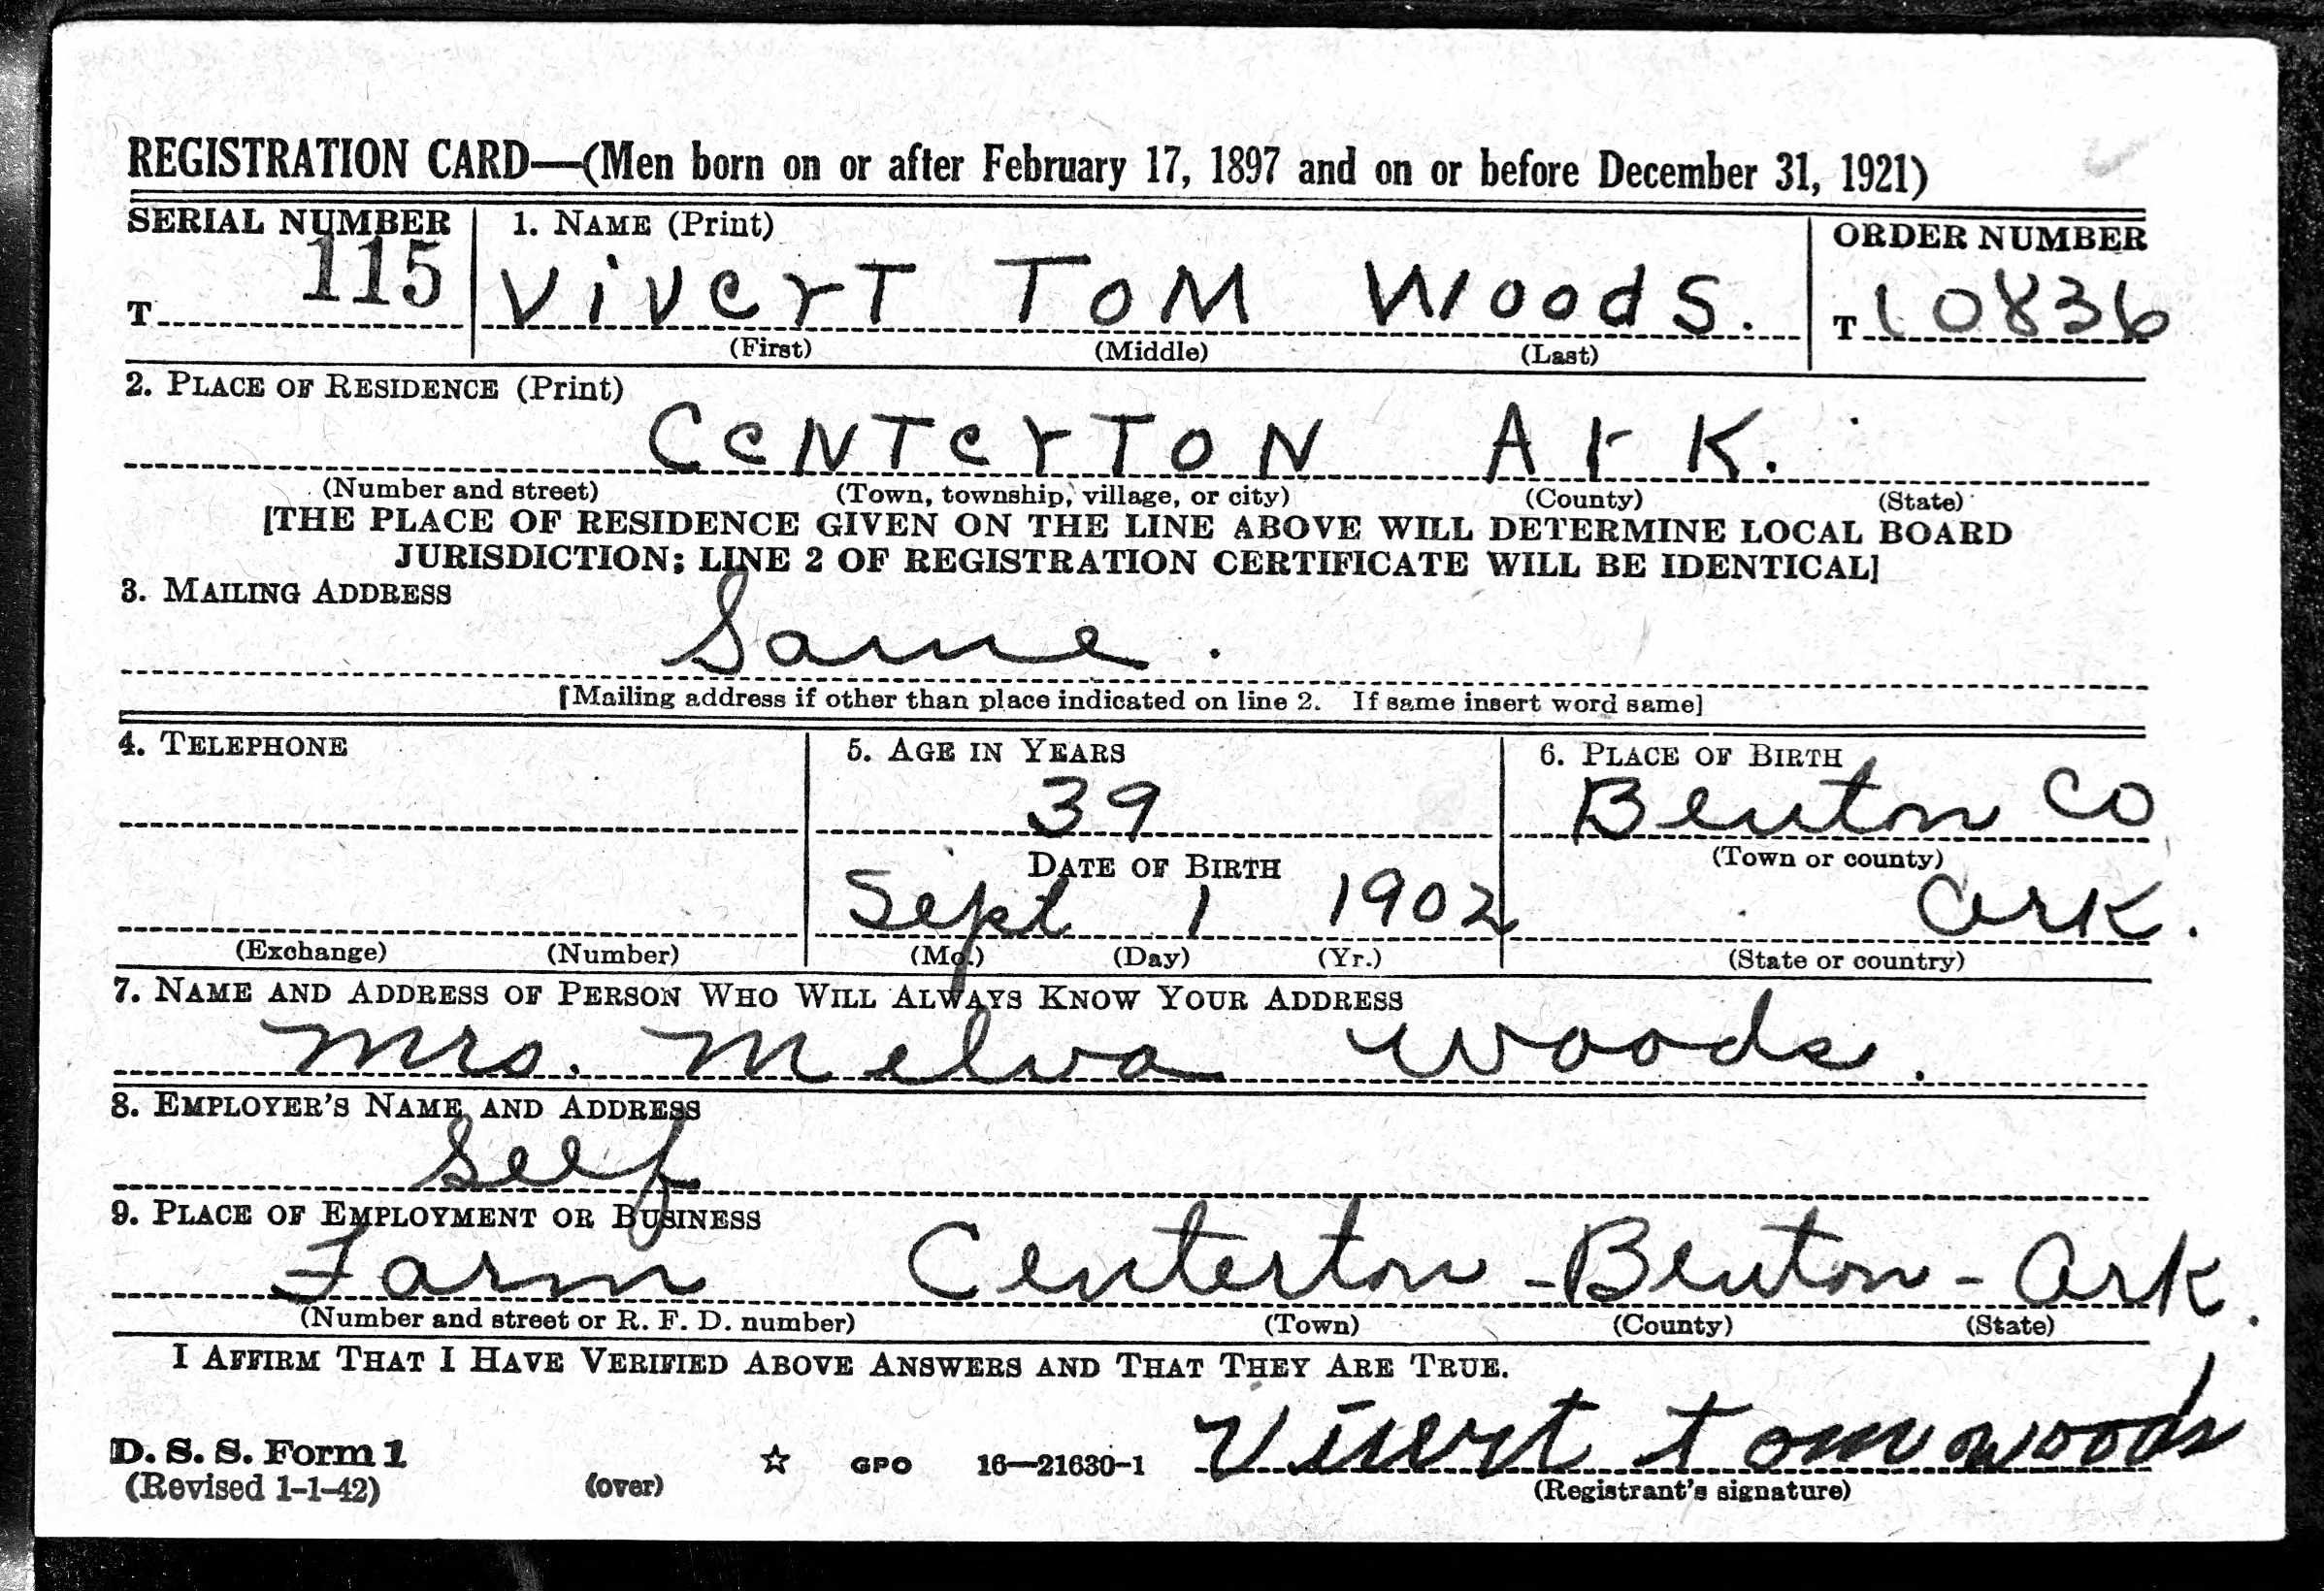 REGISTRATION CARD—(Men born on or after February 17, 1897 and on or before December 31, 1921)
SERIAL NUMBER 1. NAME (Print) ORDER NUMBER
T 115 Vivert Tom Woods. T 10836
(First) (Middle) (Last)
2. PLACE OF RESIDENCE (Print)
Centerton Ark.
(Number and street) (Town, township, village, or city) (County) (State)
[THE PLACE OF RESIDENCE GIVEN ON THE LINE ABOVE WILL DETERMINE LOCAL BOARD
JURISDICTION; LINE 2 OF REGISTRATION CERTIFICATE WILL BE IDENTICAL]
3. MAILING ADDRESS
Same.
[Mailing address if other than place indicated on line 2. If same insert word same]
4. TELEPHONE 5. AGE IN YEARS 6. PLACE OF BIRTH
39 Benton Co
DATE OF BIRTH (Town or county)
Sept 1 1902 Ark.
(Exchange) (Number) (Mo.) (Day) (Yr.) (State or country)
7. NAME AND ADDRESS OF PERSON WHO WILL ALWAYS KNOW YOUR ADDRESS
Mrs. Melva Woods.
8. EMPLOYER'S NAME AND ADDRESS
Self
9. PLACE OF EMPLOYMENT OR BUSINESS
Farm Centerton - Benton - Ark.
(Number and street or R. F. D. number) (Town) (County) (State)
I AFFIRM THAT I HAVE VERIFIED ABOVE ANSWERS AND THAT THEY ARE TRUE.
D. S. S. Form 1
(Revised 1-1-42) (over) ☆ GPO 16—21630-1 Vivert tom woods
(Registrant's signature)